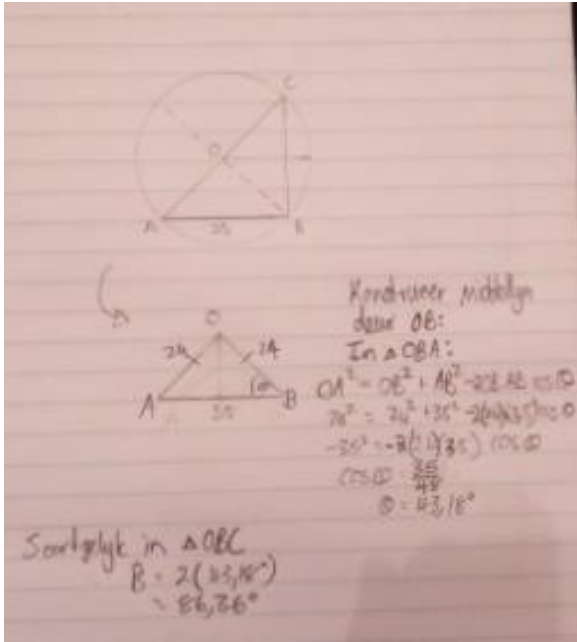 C
O
A 35 B
O
24 24
A 35 B
Konstrueer middellyn
deur OB:
In △OBA:
OA² = OB² + AB² - 2OB.AB cos θ
24² = 24² + 35² - 2(24)(35) cos θ
-35² = -2(24)(35) cos θ
cos θ = 35/48
θ = 43,18°
Soortgelyk in △OBC
B = 2(43,18°)
= 86,36°